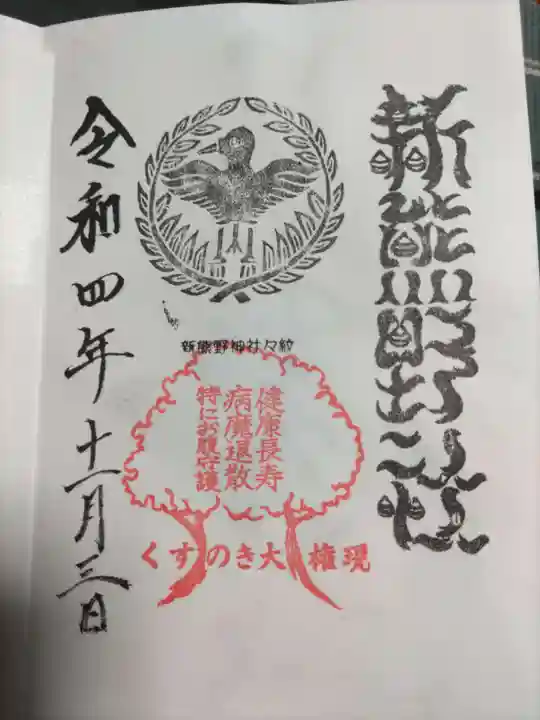 新熊野神社
新熊野神社々紋
健康長寿
病魔退散
特にお腹守護
くすのき大権現
令和四年十一月三日